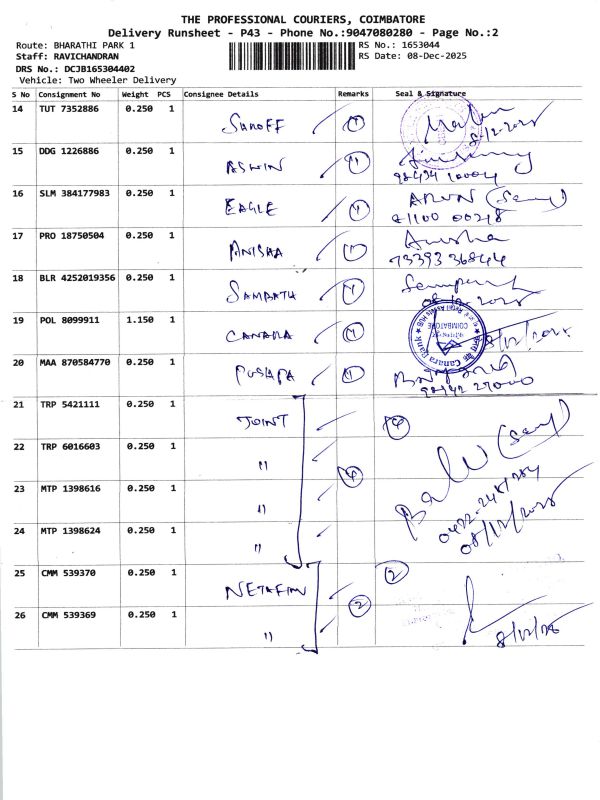 THE PROFESSIONAL COURIERS, COIMBATORE
Delivery Runsheet - P43 - Phone No.:9047080280 - Page No.:2
Route: BHARATHI PARK 1 RS No.: 1653044
Staff: RAVICHANDRAN RS Date: 08-Dec-2025
DRS No.: DCJB165304402
Vehicle: Two Wheeler Delivery
S No Consignment No Weight PCS Consignee Details Remarks Seal & Signature
14 TUT 7352886 0.250 1 1
8/12-2025
15 DDG 1226886 0.250 1 ASWIN 1
98434 10004
16 SLM 384177983 0.250 1 EAGLE 1 ARUN
81100 00218
17 PRO 18750504 0.250 1 ANISHA 1 Anisha
73393 36844
18 BLR 4252019356 0.250 1 SAMPATH 1
08-12-2025
19 POL 8099911 1.150 1 CANARA 1 Canara Bank COIMBATORE 8/12/2025
20 MAA 870584770 0.250 1 PUSHPA 1
98942 27000
21 TRP 5421111 0.250 1 JOINT 4
22 TRP 6016603 0.250 1 " 4 Balu
23 MTP 1398616 0.250 1 "
24 MTP 1398624 0.250 1 " 08/12/2025
25 CMM 539370 0.250 1 NETAFIM 2
26 CMM 539369 0.250 1 " 2 8/12/25